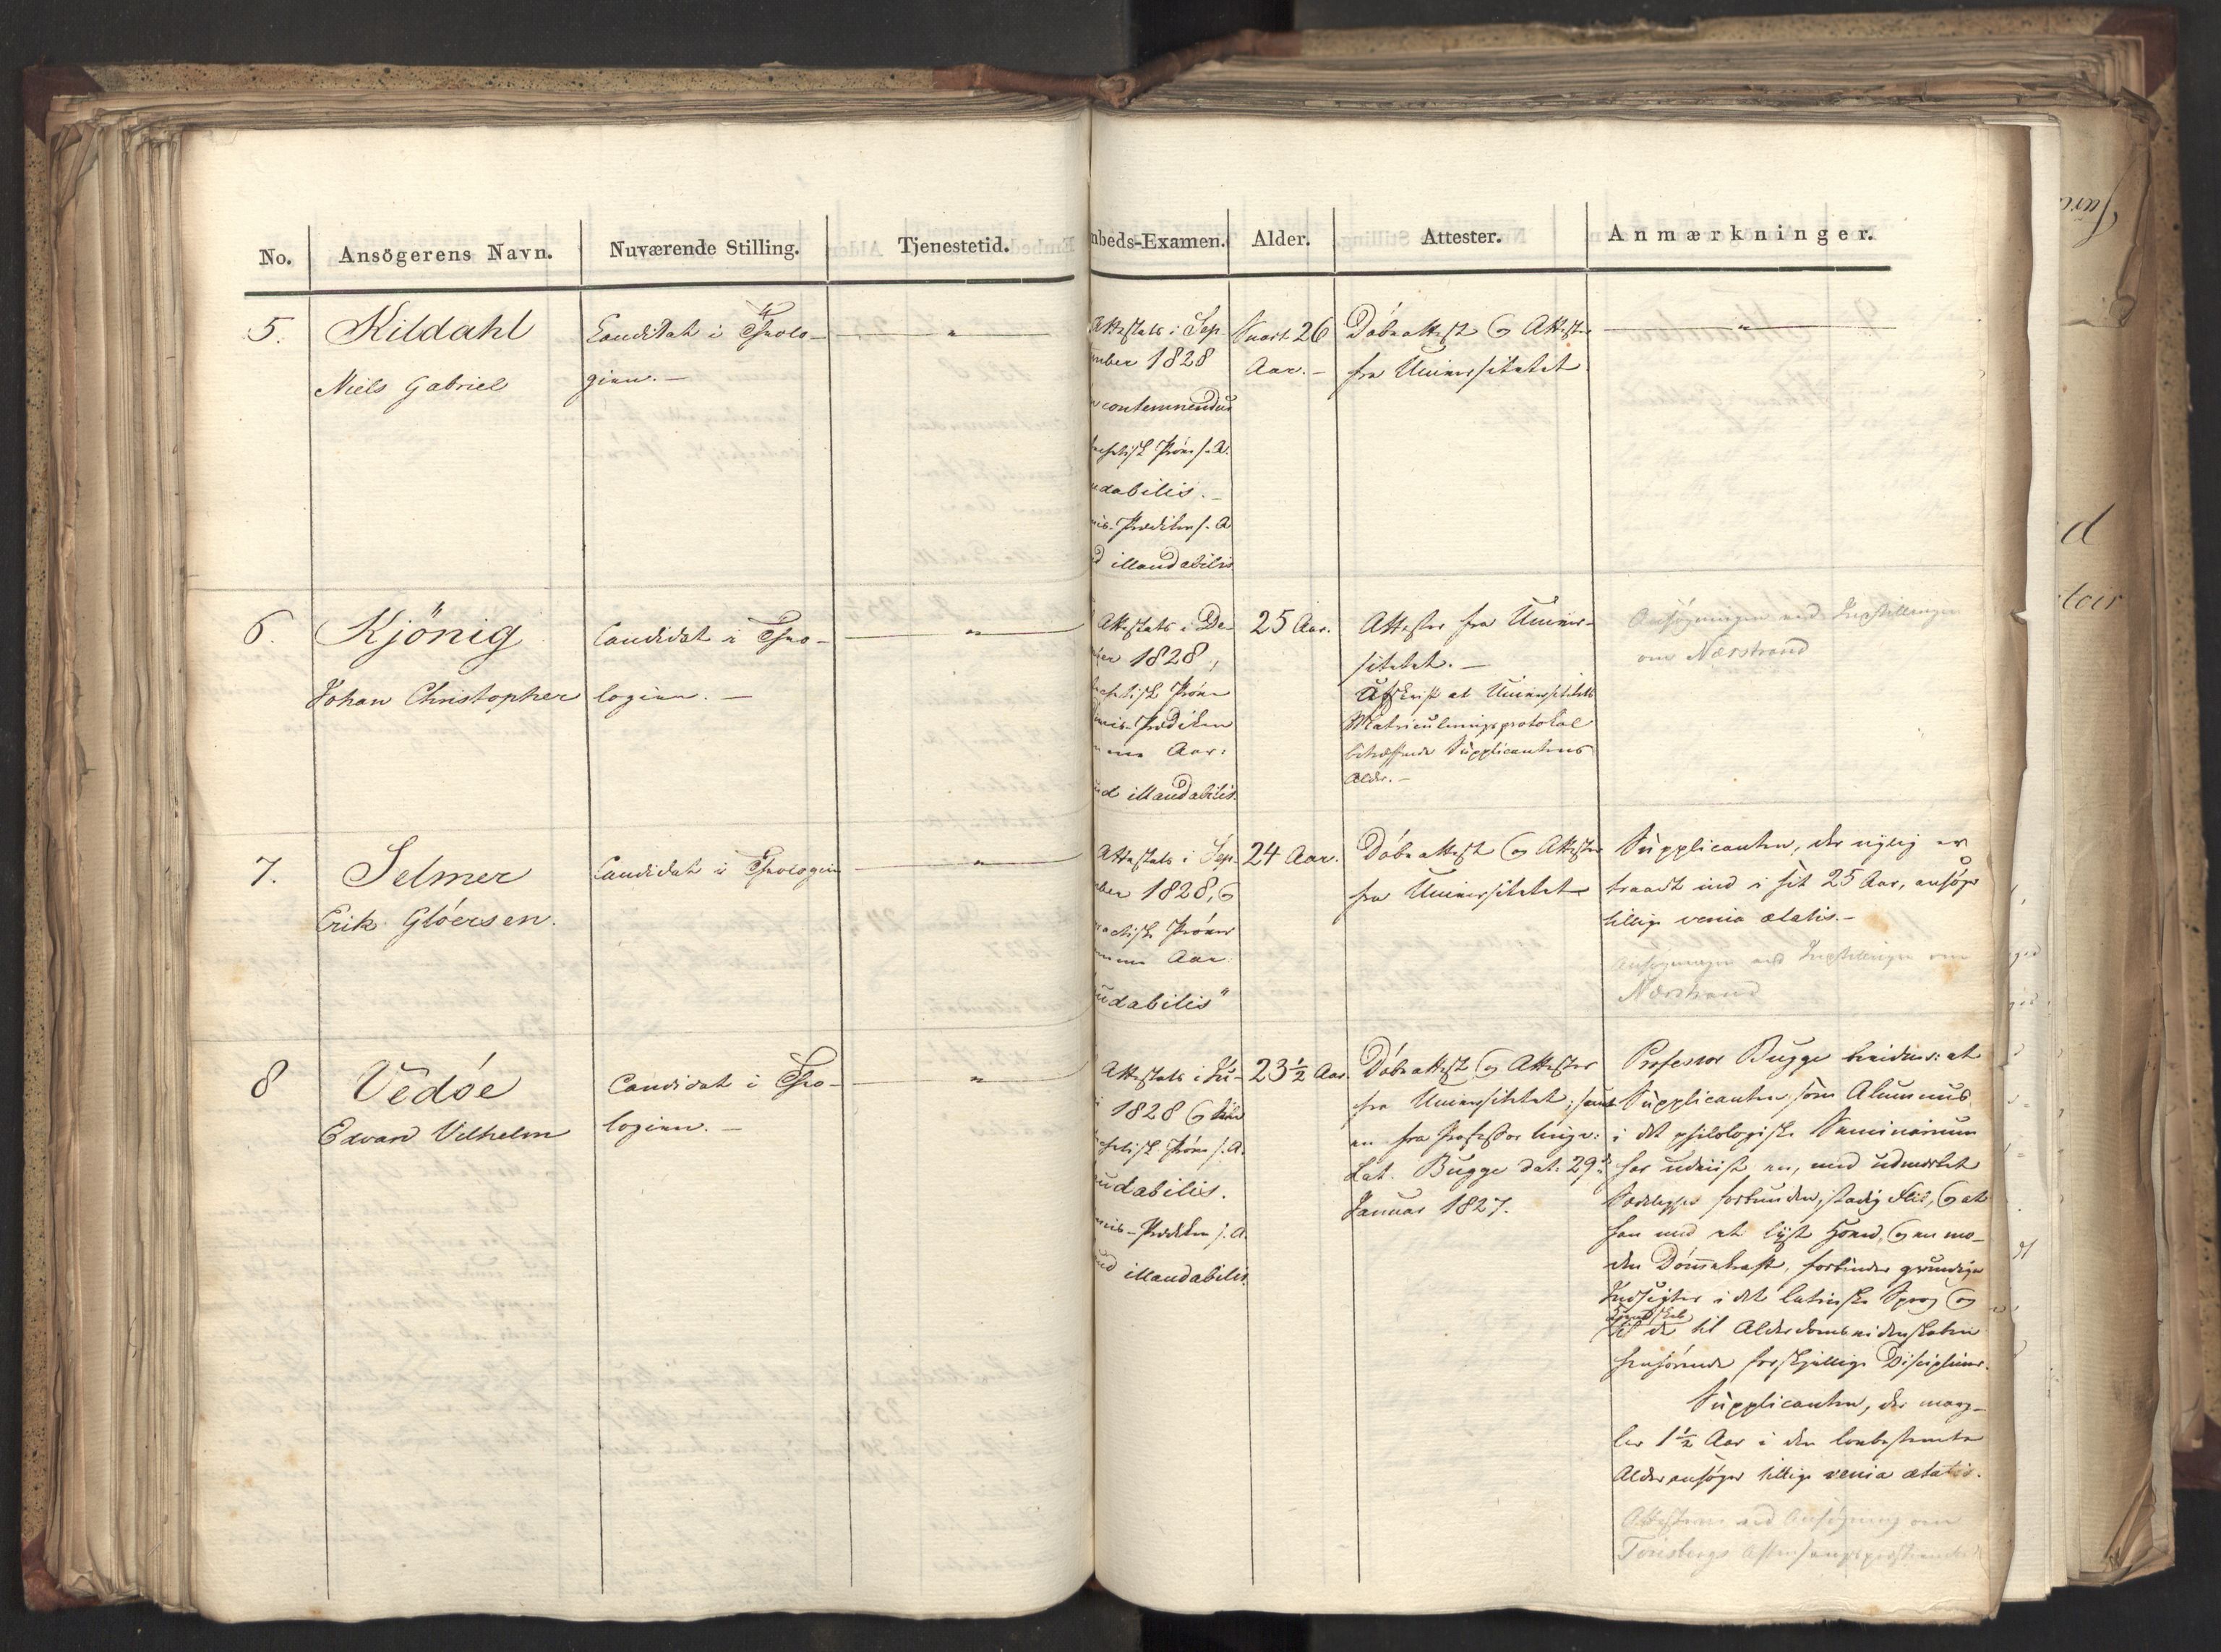 No.
Ansögerens Navn.
Nuværende Stilling.
Tjenestetid.
mbeds-Examen.
Alder.
Attester.
Anmærkninger.
5.
Kildahl
Niels Gabriel
Candidat i Theolo-
gien. –
"
Attestats i Sep-
mber 1828
contemnendus
Prøve s. A.
udabilis. –
Prædiken s. A
d illaudabilis
Snart 26
Aar. –
Døbeattest og Attester
fra Universitetet
"
6.
Kjönig
Johan Christopher
Candidat i Theo-
logien. –
"
Attestats i De-
ber 1828,
Prøve
Prædiken
Aar:
ud illaudabilis.
25 Aar.
Attester fra Univer-
sitetet. –
Afskrift af Universitetets
Matriculeringsprotokol
betræffende Supplicantens
Alder. –
Ansøgningen ved Indstillingen
om Nærstrand
7.
Selmer
Erik Glöersen.
Candidat i Theologien
"
Attestats i Sep-
ber 1828, og
Prøver
Aar.
udabilis"
24 Aar.
Døbeattest og Attester
fra Universitetet
Supplicanten, der nylig er
traadt ind i sit 25 Aar, ansøger
tillige venia ætatis. –
Ansøgningen ved Indstillingen om
Nærstrand
8
Vedöe
Edvard Vilhelm
Candidat i Theo-
logien. –
"
Attestats i Ju-
1828 og
Prøve s. A.
udabilis.
Prædiken s. A.
ud illaudabilis.
23½ Aar.
Døbeattest og Attester
fra Universitetet; samt
en fra Professor lingv:
Lat. Bugge dat. 29de
Januar 1827.
Professor Bugge bevidner: at
Supplicanten, som Alumnus
i det philologiske Seminarium
har udviist en, med udmærket
forbunden, stadig Flid, og at
han med et lyst Hoved, og en mo-
den Dømmekraft, forbinder grundige
Indsigter i det latinske Sprog og
Kundskab
de til Alderdomsvidenskaben
henhørende forskjellige Discipliner.
Supplicanten, der mang-
ler 1½ Aar i den lovbestemte
Alder ansøger tillige venia ætatis.
Attesterne ved Ansøgning om
Tönsbergs